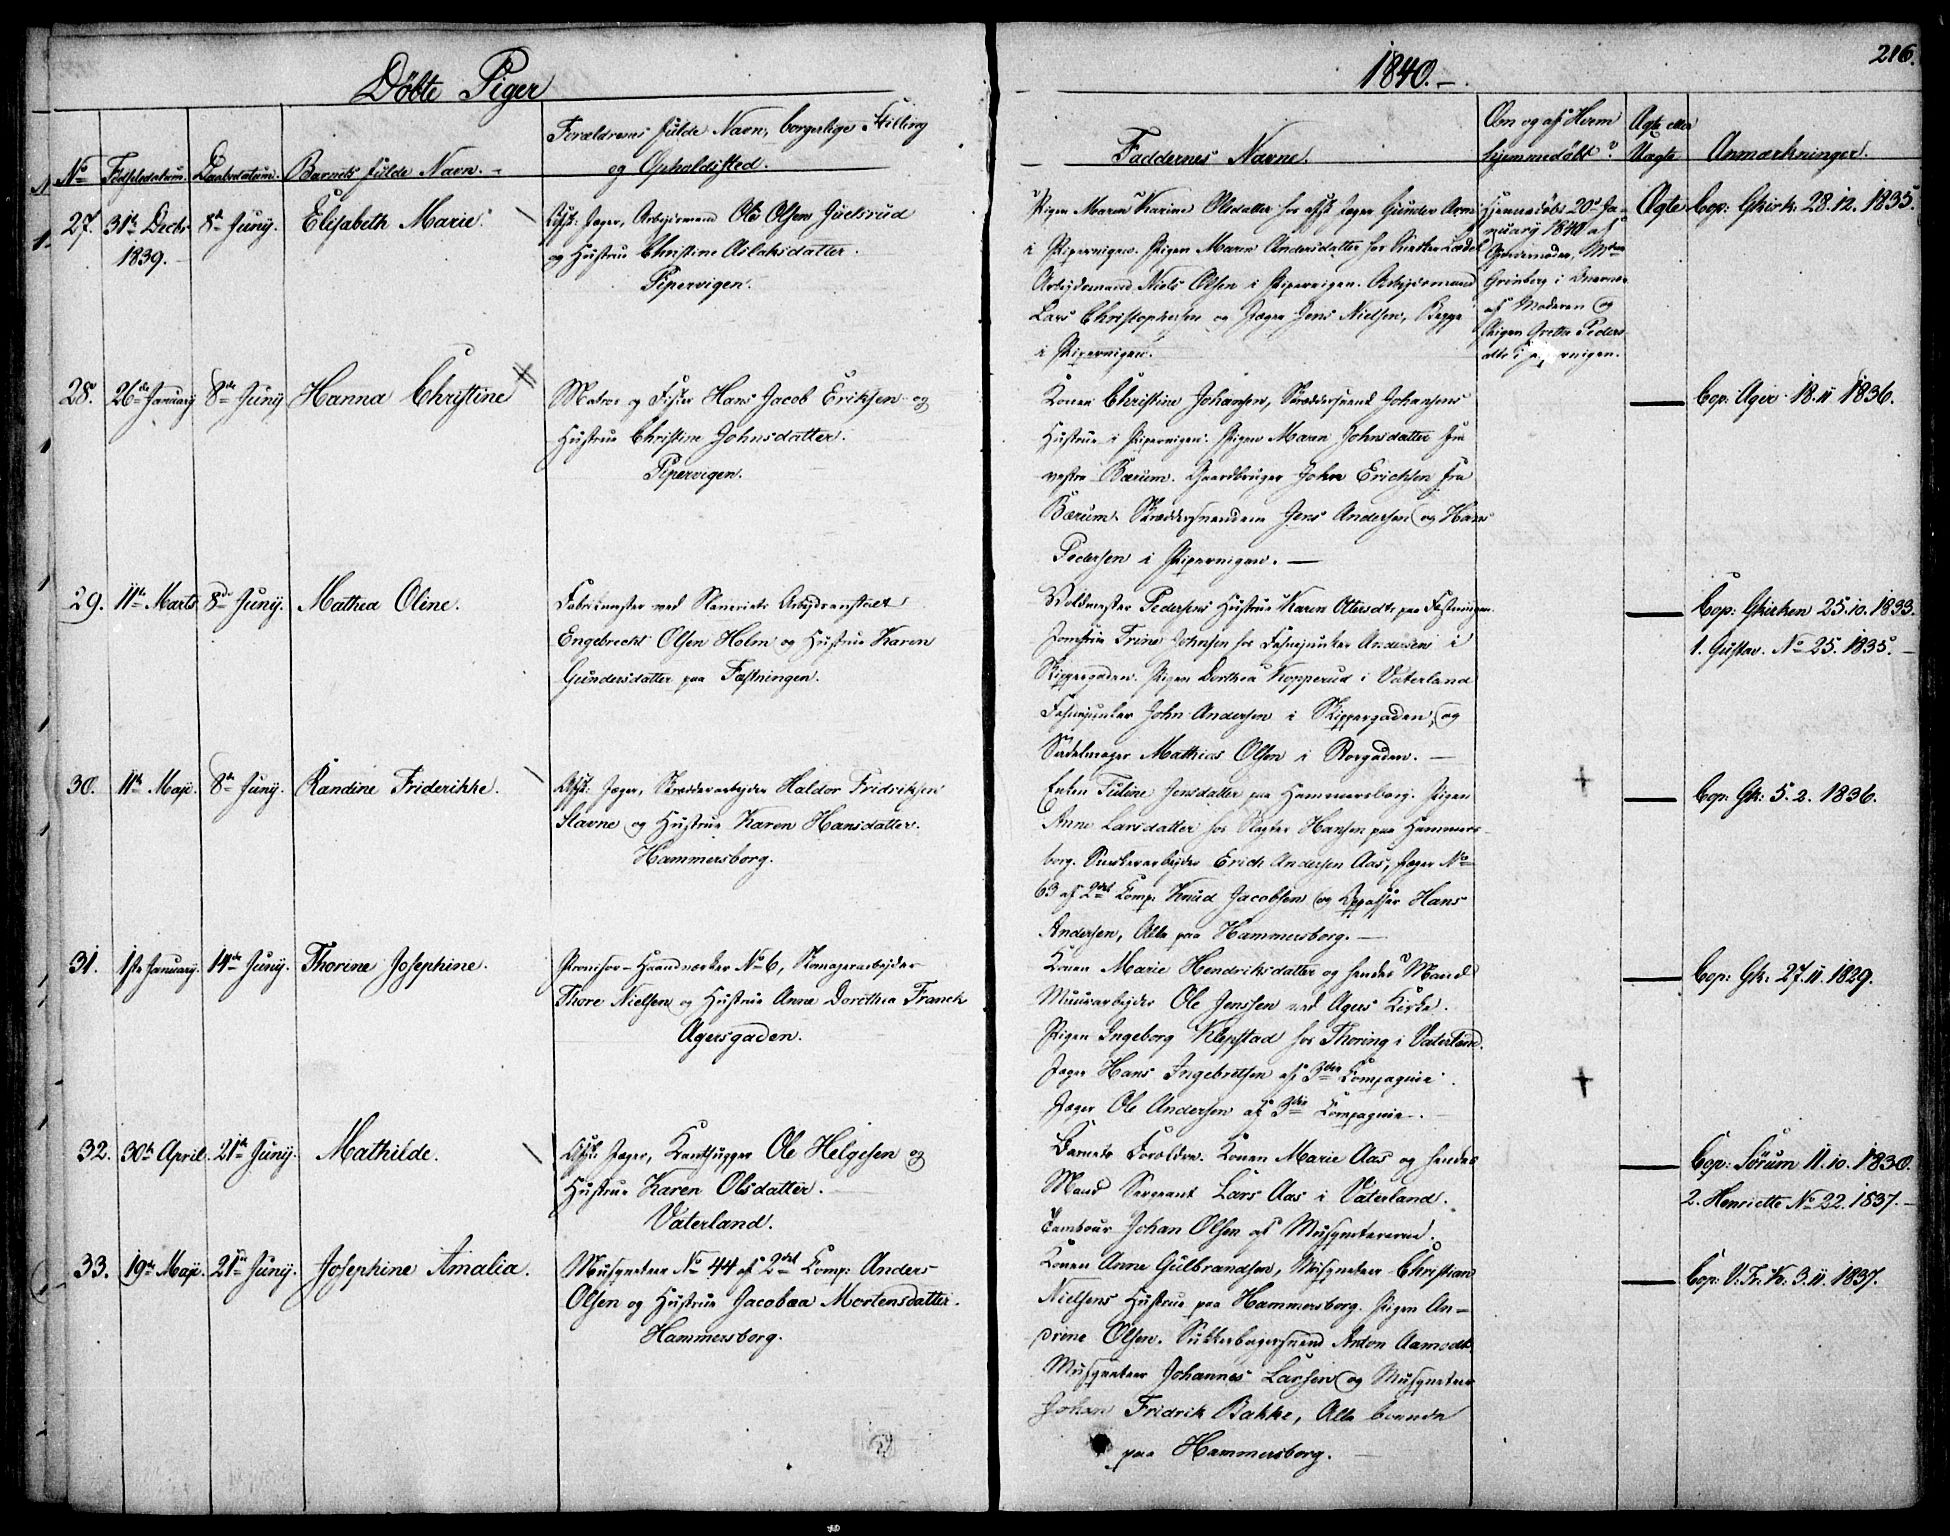 216.
Döbte Piger
1840.-
No
Födselsdatum.
Daabsdatum.
Barnets fulde Navn.
Forældrenes fulde Navn, borgerlige Stilling
og Opholdssted.
Faddernes Navne.
Om og af Hvem
hjemmedöbt?
Ægte eller
Uægte
Anmærkninger.
27. 31te Decbr 8de Juny. Elisabeth Marie.
1839.
Afsk: Jæger, Arbejdsmand Ole Olsen Juelsrud
og Hustrue Christine Aslaksdatter.
Pipervigen.
Pigen Maren Karine Olsdatter hos afsk Jæger Gunder
i Pipervigen. Pigen Maren Andersdatter hos
Arbejdsmand Niels Olsen i Pipervigen. Arbejdsmand
Lars Christophersen og Jæger Jens Nielsen, Begge
i Pipervigen.
Hjemmedöbt 20de Ja-
nuary 1840 af
Gjordemoder, M
Grönberg i
af Moderen og
Pigen Grethe Peders
Ægte Cop: Gkirk. 28.12.1835.
28. 26de January 8de Juny Hanna Christine
Matros og Fisker Hans Jacob Eriksen og
Hustrue Christine Johnsdatter.
Pipervigen.
Konen Christine Johansen, Skræddersvend Johansens
Hustrue i Pipervigen. Pigen Maren Johnsdatter fra
vestre Bærum. Gaardbruger John Erichsen fra
Bærum. Skræddersvendene Jens Andersen og Hans
Pedersen i Pipervigen. —
— Cop: Ager 18.11 1836.
29. 11te Marts 8de Juny. Mathea Oline.
Fabrikmester ved Slaveriets Arbejdsanstalt
Engebrecht Olsen Holm og Hustrue Karen
Gundersdatter paa Fæstningen.
Voldmester Pedersens Hustrue Karen Ottersdtr paa Fæstningen.
Jomfrue Trine Johnsen hos Fanejunker Andersen i
Skippergaden. Pigen Dorthea Kopperud i Vaterland
Fanejunker John Andersen i Skippergaden, og
Sadelmager Mathias Olsen i Storgaden. —
— Cop: Gkirken 25.10.1833.
1. Gustav. No 25. 1835. —
30. 11te Maji. 8de Juny. Randine Friderikke.
Afsk: Jæger, Skrædderarbejder Haldor Fridriksen
Slavne og Hustrue Karen Hansdatter.
Hammersborg.
Enken Tuline Jensdatter paa Hammersborg. Pigen
Anne Larsdatter hos Slagter Hansen paa Hammers-
borg. Snedkerarbejder Erich Andersen Aas, Jæger No
63 af 2det Comp. Knud Jacobsen og Opasser Hans
Andersen, Alle paa Hammersborg. —
— Cop: Gk: 5.2. 1836.
31. 1ste January. 14de Juny. Thorine Josephine.
Provisor-Haandværker No 6, Skomagerarbejder
Thore Nielsen og Hustrue Anne Dorothea Franck
Agersgaden.
Konen Marie Hendriksdatter og hendes Mand
Muurarbejder Ole Jenssen ved Agers Kirke.
Pigen Ingeborg Klepstad hos Thoring i Vaterland.
Jæger Hans Ingebretsen af 3die Compagnie.
Jæger Ole Andersen af 3die Compagnie.
— Cop: Gk. 27.11.1829.
32. 30te April. 21de Juny. Mathilde.
Afsk: Jæger, Ole Helgesen og
Hustrue Karen Olsdatter.
Vaterland.
Barnets Forældre. Konen Marie Aas og hendes
Mand Sergeant Lars Aas i Vaterland.
Tambour Johan Olsen af Musqueterere.
— Cop: Sörum 11.10.1830.
2. Henriette No 22. 1837. —
33. 19de Maji. 21de Juny. Josephine Amalia.
Musqueteer No 44 af 2det Comp: Anders
Olsen og Hustrue Jacobæa Mortensdatter.
Hammersborg.
Konen Anne Gulbrandsen, Musqueteer Christian
Nielsens Hustrue paa Hammersborg. Pigen An-
drine Olsen. Sukkerbagersvend Anton Aamodt.
Musqueteer Johannes Larsen og Musqueteer
Johan Fridrik Bakke, Alle boende
paa Hammersborg. —
— Cop: V. Fr. K. 3.11. 1837.